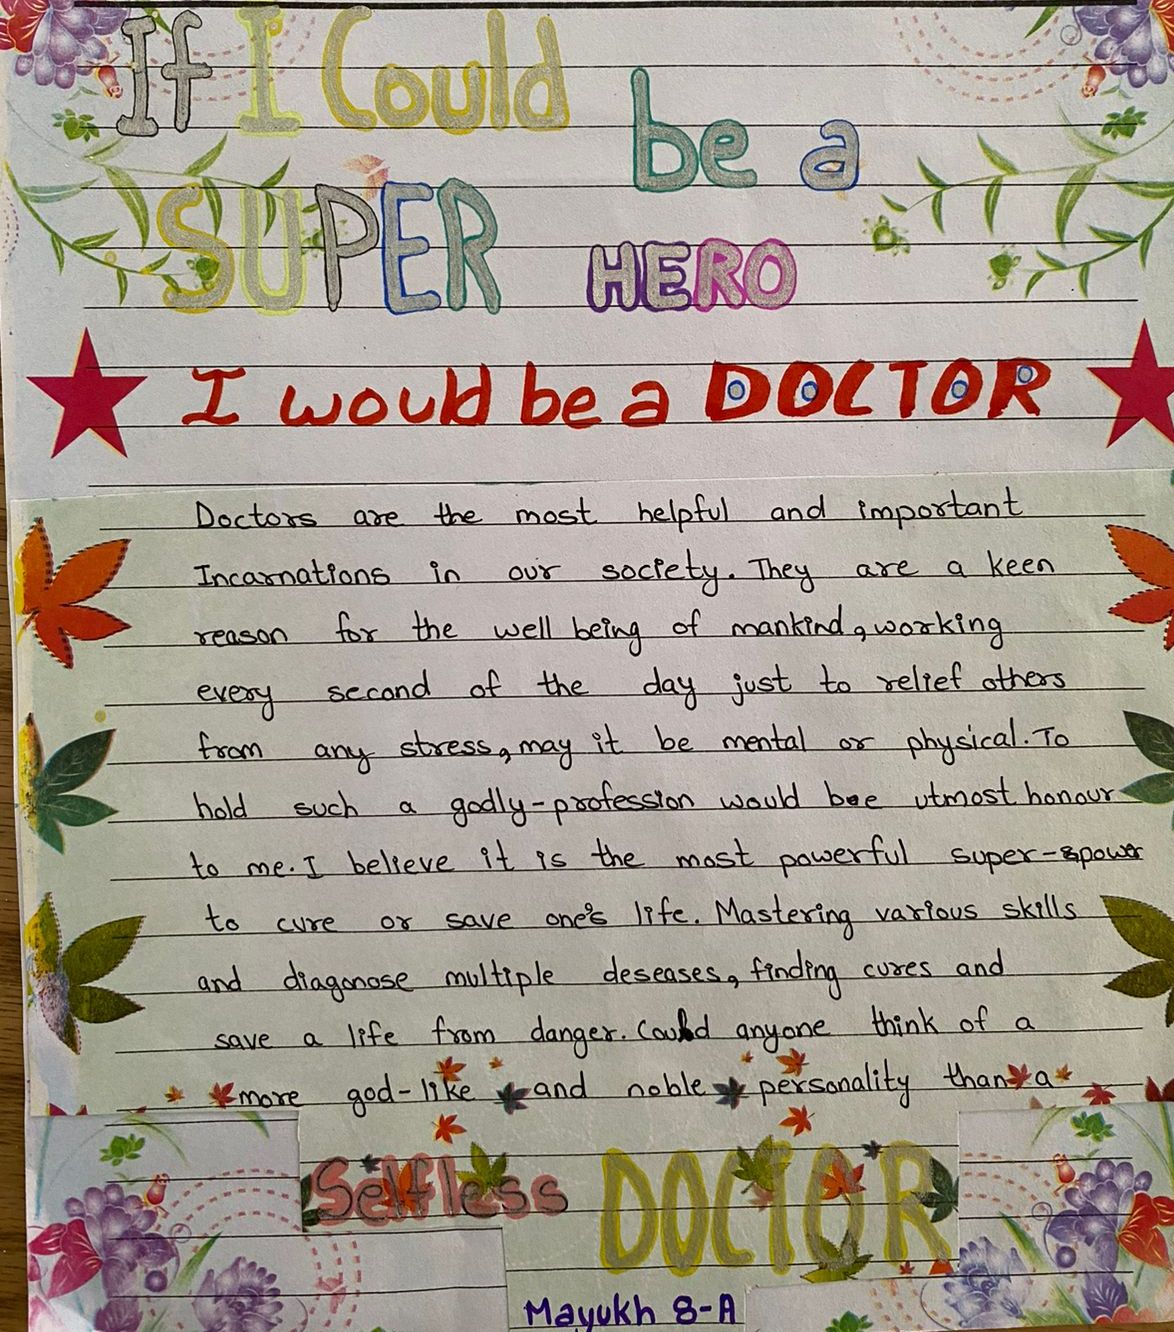 If I Could be a
SUPER HERO
I would be a DOCTOR
Doctors are the most helpful and important
Incarnations in our society. They are a keen
reason for the well being of mankind, working
every second of the day just to relief others
from any stress, may it be mental or physical. To
hold such a godly-profession would be utmost honour
to me. I believe it is the most powerful super-power
to cure or save one's life. Mastering various skills
and diagonose multiple deseases, finding cures and
save a life from danger. Could anyone think of a
more god-like and noble personality than a
Selfless DOCTOR
Mayukh 8-A